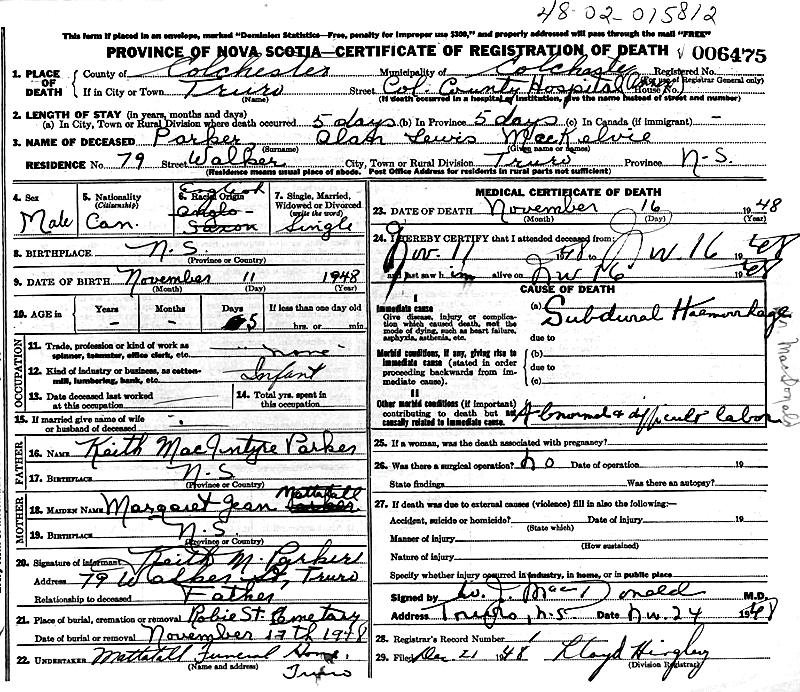 48-02-015812
This form if placed in an envelope, marked "Dominion Statistics—Free, penalty for improper use $300," and properly addressed will pass through the mail "FREE"
PROVINCE OF NOVA SCOTIA—CERTIFICATE OF REGISTRATION OF DEATH 006475
1. PLACE OF DEATH { County of Colchester Municipality of Colchester Registered No.
(For use of Registrar General only)
If in City or Town Truro Street Col. County Hospital House No.
(Name) (If death occurred in a hospital or institution, give the name instead of street and number)
2. LENGTH OF STAY (in years, months and days)
(a) In City, Town or Rural Division where death occurred 5 days (b) In Province 5 days (c) In Canada (if immigrant) —
3. NAME OF DECEASED Parker Alan Lewis MacKelvie
(Surname) (Given name or names)
RESIDENCE No. 79 Street Walker City, Town or Rural Division Truro Province N-S.
(Residence means usual place of abode. Post Office Address for residents in rural parts not sufficient)
4. Sex Male
5. Nationality (Citizenship) Can.
6. Racial Origin English Anglo-Saxon
7. Single, Married, Widowed or Divorced (write the word) Single
8. BIRTHPLACE N.S.
(Province or Country)
9. DATE OF BIRTH November 11 1948
(Month) (Day) (Year)
10. AGE in { Years - Months - Days 5 If less than one day old
hrs. or min.
OCCUPATION
11. Trade, profession or kind of work as spinner, teamster, office clerk, etc. none
12. Kind of industry or business, as cotton-mill, lumbering, bank, etc. Infant
13. Date deceased last worked at this occupation
14. Total yrs. spent in this occupation
15. If married give name of wife or husband of deceased
FATHER
16. NAME Keith MacIntyre Parker
17. BIRTHPLACE N.S
(Province or Country)
MOTHER
18. MAIDEN NAME Margaret Jean Mattatall
19. BIRTHPLACE N.S.
(Province or Country)
20. Signature of informant Keith M. Parker
Address 79 Walker St, Truro
Relationship to deceased Father
21. Place of burial, cremation or removal Robie St. Cemetary
Date of burial or removal November 17th 1948
22. UNDERTAKER Mattatall Funeral Home,
(Name and address) Truro
MEDICAL CERTIFICATE OF DEATH
23. DATE OF DEATH November 16 1948
(Month) (Day) (Year)
24. I HEREBY CERTIFY that I attended deceased from:
Nov. 11 1948 to Nov. 16 1948
and last saw him alive on Nov 16 1948
CAUSE OF DEATH
I
Immediate cause
Give disease, injury or complication which caused death, not the mode of dying, such as heart failure, asphyxia, asthenia, etc.
(a) Subdural Haemorrhage
due to
Morbid conditions, if any, giving rise to immediate cause (stated in order proceeding backwards from immediate cause).
(b)
due to
(c)
II
Other morbid conditions (if important) contributing to death but not causally related to immediate cause.
Abnormal & difficult labor
MacDonald
25. If a woman, was the death associated with pregnancy?
26. Was there a surgical operation? no Date of operation 19
State findings Was there an autopsy?
27. If death was due to external causes (violence) fill in also the following:—
Accident, suicide or homicide? Date of injury 19
(State which)
Manner of injury
(How sustained)
Nature of injury
Specify whether injury occurred in industry, in home, or in public place
Signed by W. J. MacDonald M.D.
Address Truro, N.S Date Nov. 24 1948
28. Registrar's Record Number 1
29. Filed Dec 21 1948 Lloyd Hingley
(Division Registrar)